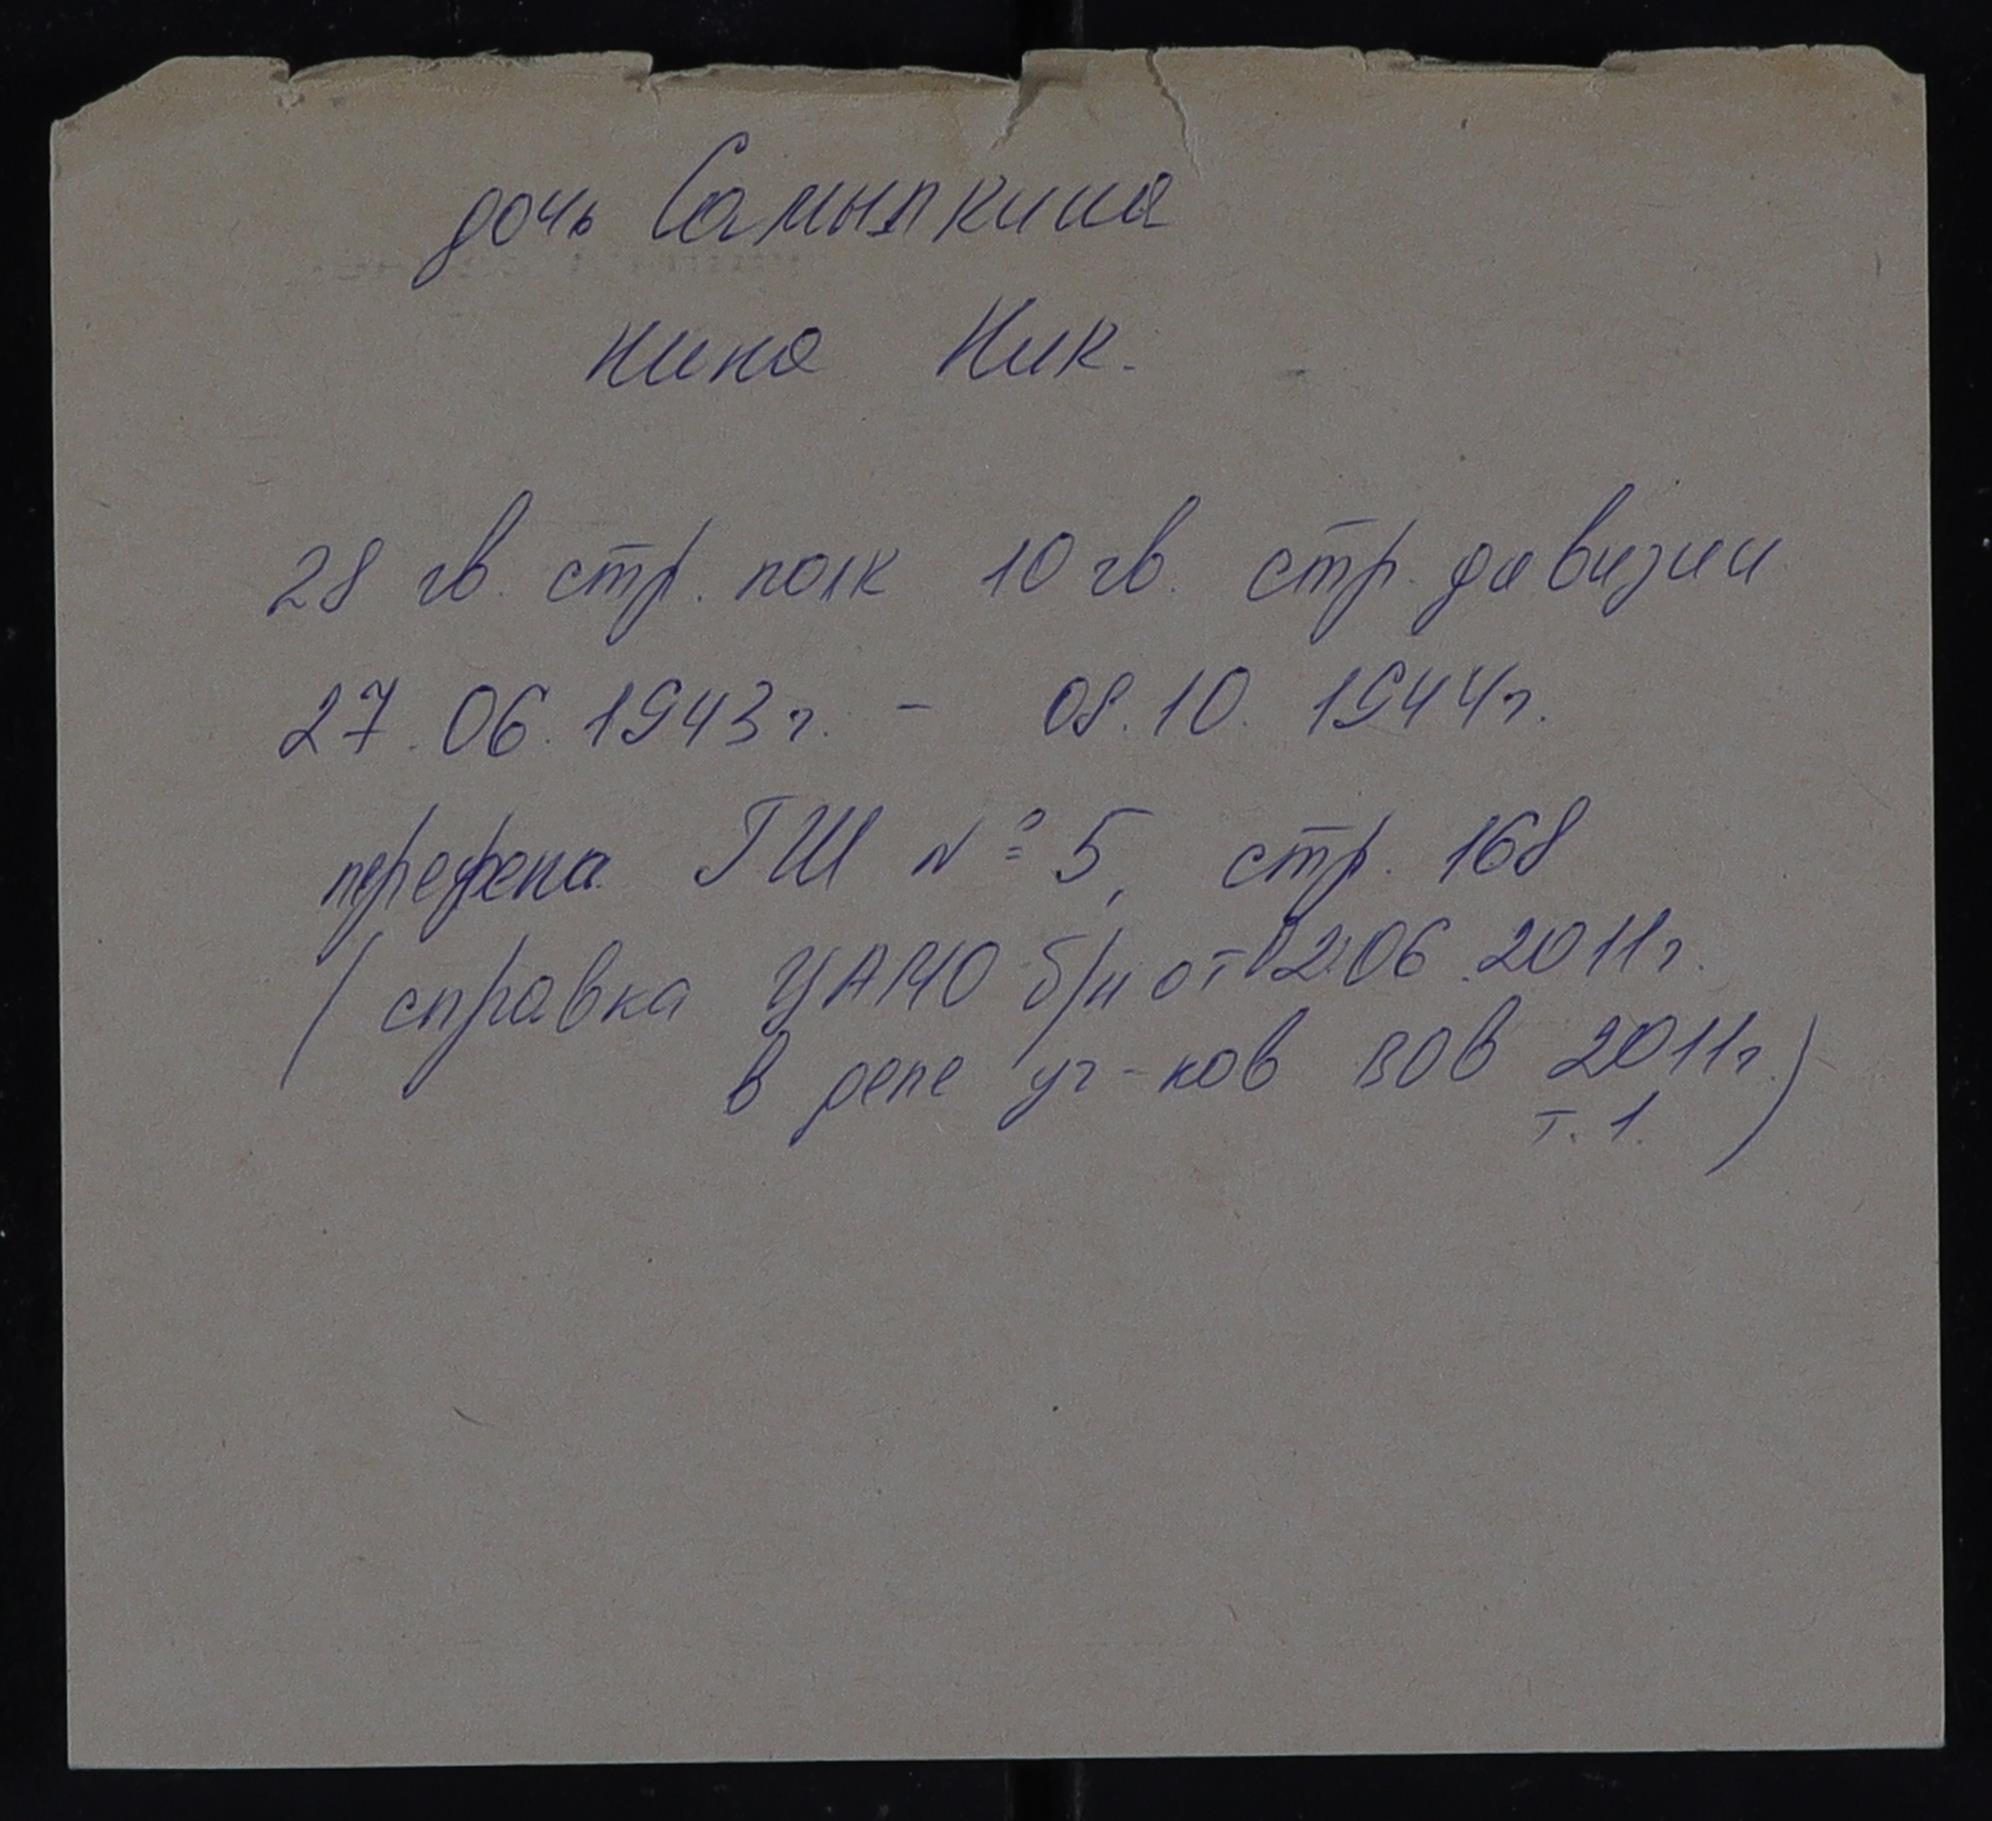 дочь Самылкина
Нина Ник.
28 гв. стр. полк 10 гв. стр. дивизии
27.06.1943г. - 08.10.1944г.
перечень ГШ № 5, стр. 168
(справка ЦАМО б/н от 02.06.2011г.
в деле уч-ков ВОВ 2011г.)
т. 1.